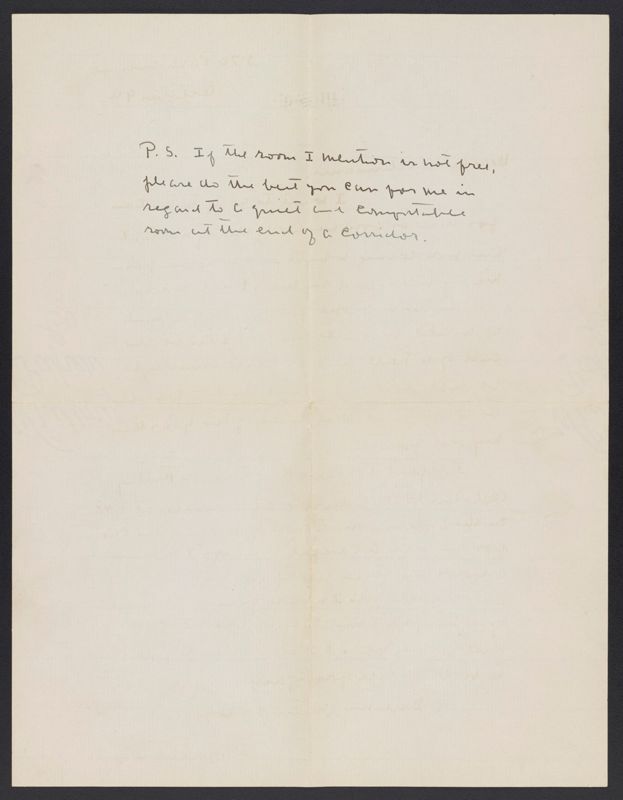 P. S. If the room I mention is not free,
please do the best you can for me in
regard to a quiet and comfortable
room at the end of a corridor.